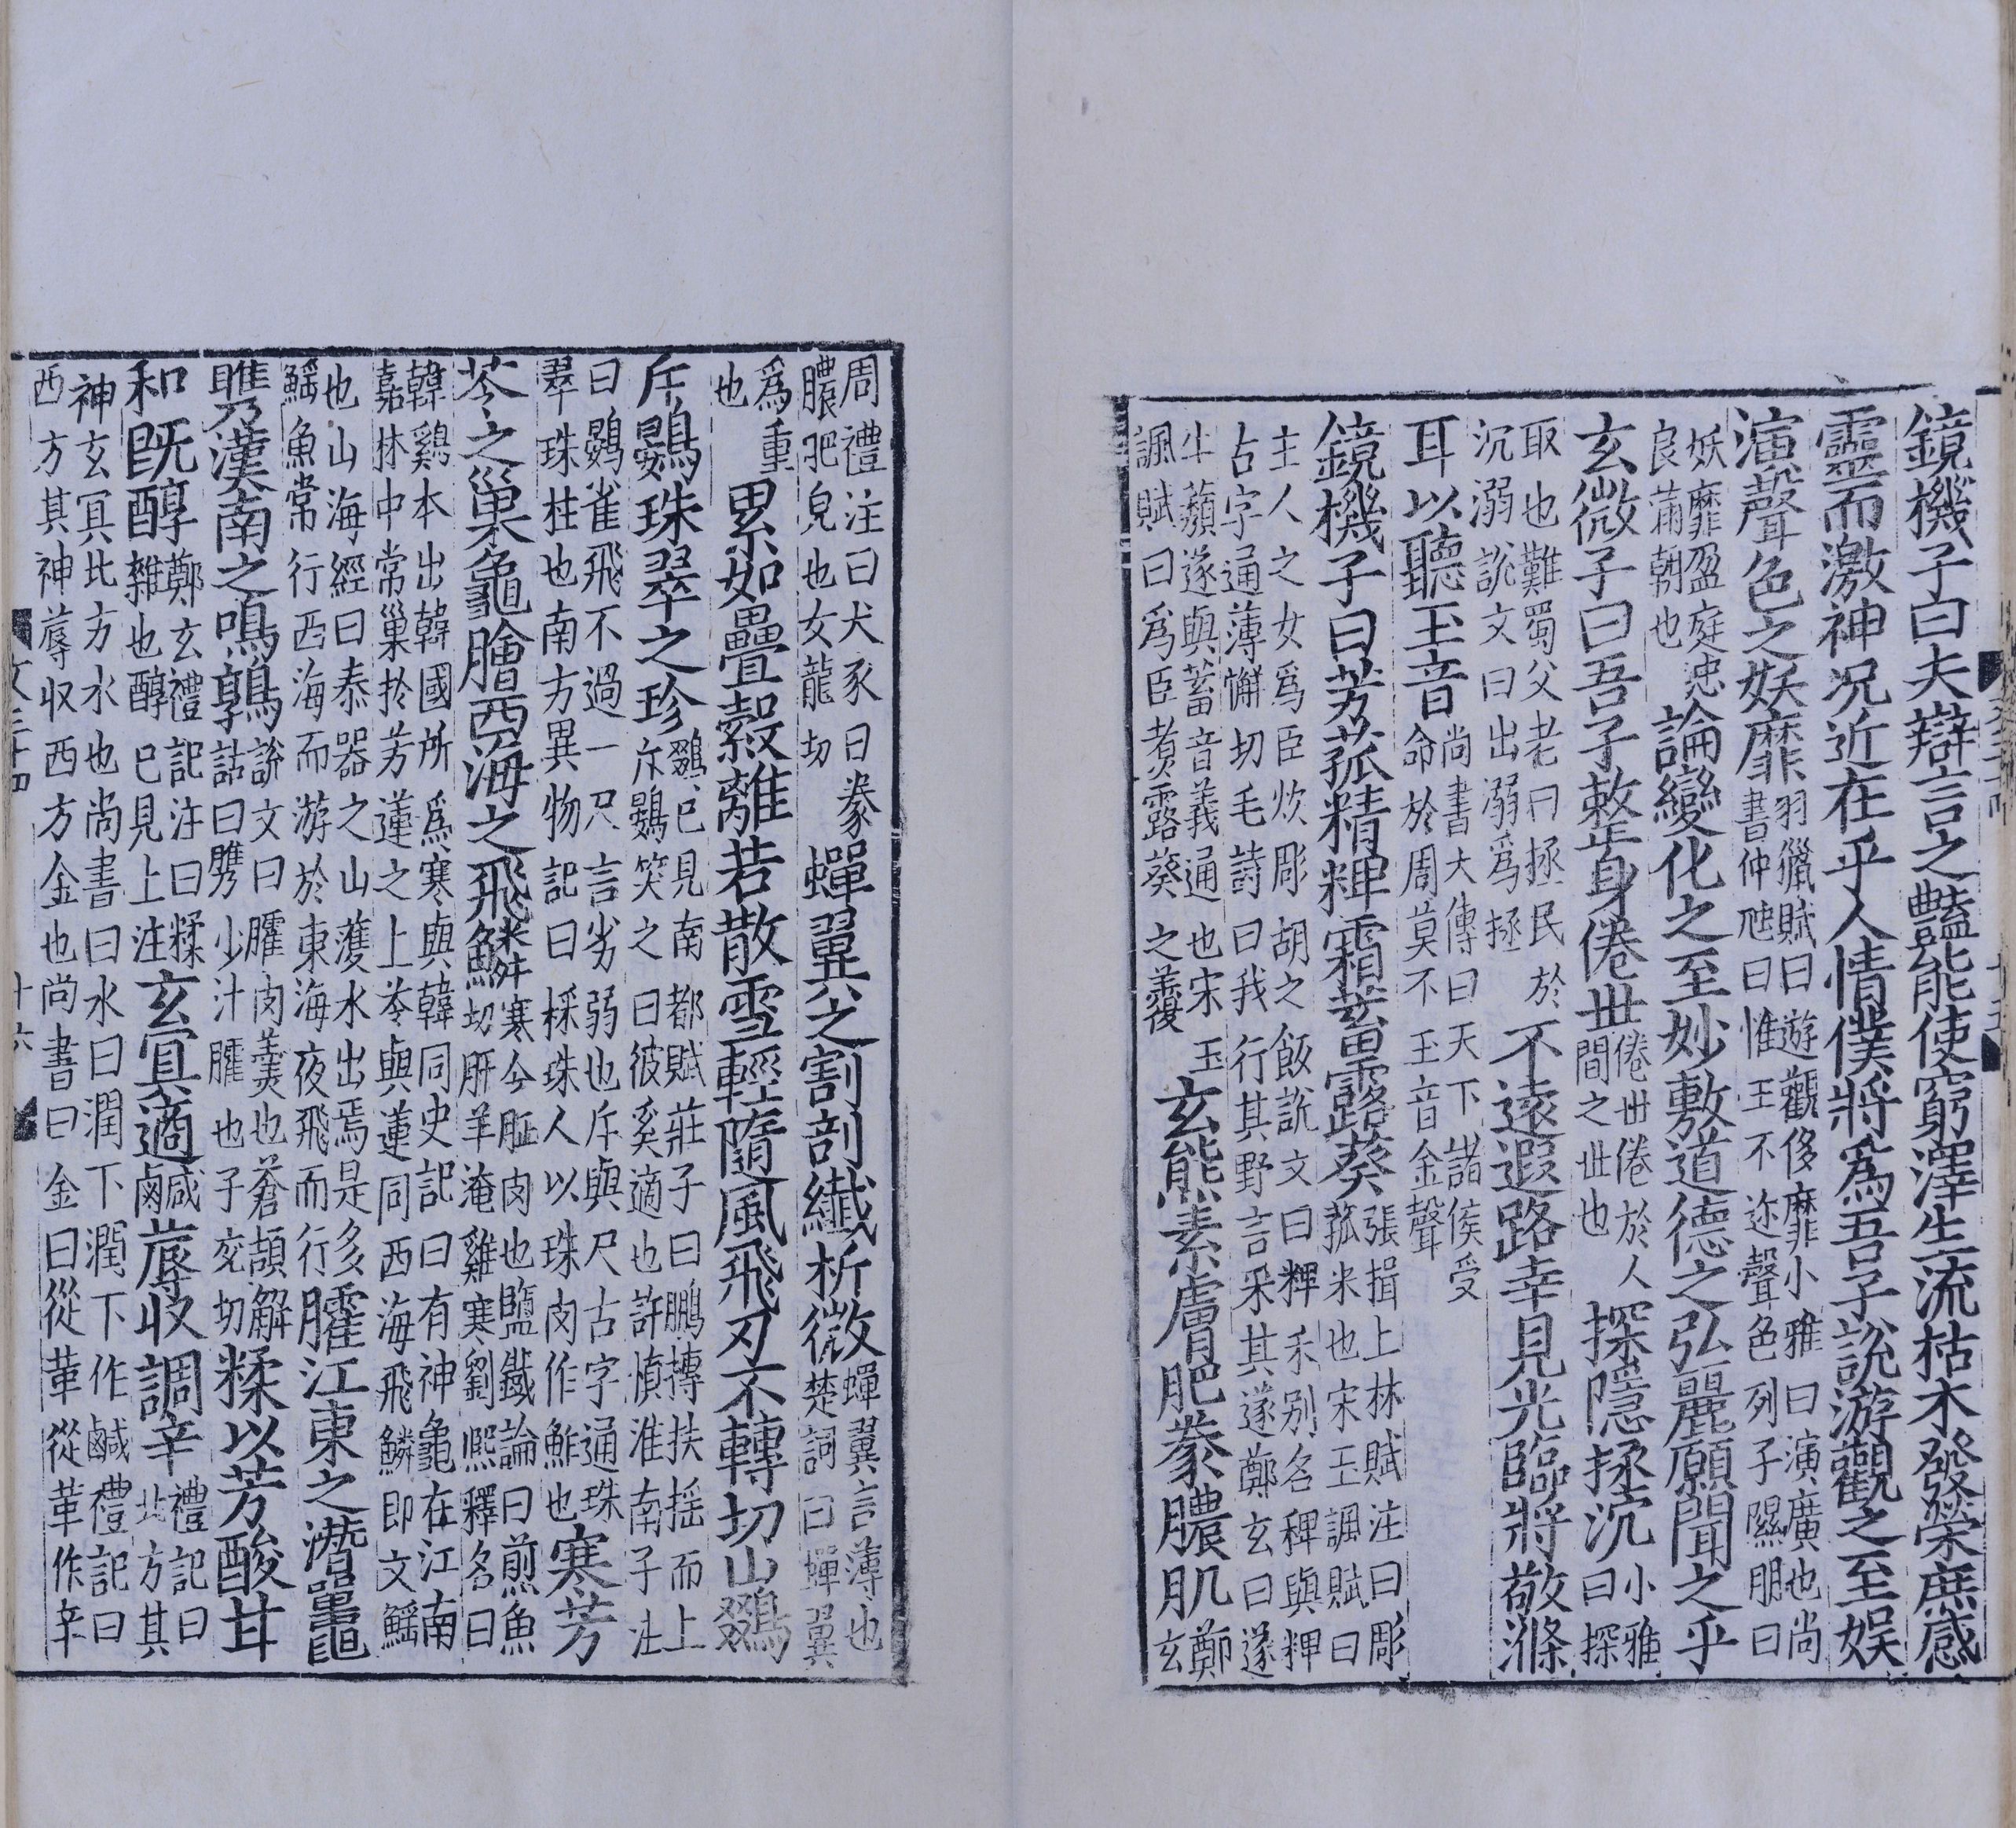 鏡機子曰夫辯言之豔能使窮澤生流枯木發榮庶感
靈而激神況近在乎人情僕將爲吾子說游觀之至娱
演聲色之妖靡羽獵賦曰遊觀侈靡小雅曰演廣也尚
書仲虺曰惟王不迩聲色列子隰朋曰
妖靡盈庭忠
良蒲朝也論變化之至妙敷道德之弘麗願聞之乎
玄微子曰吾子整身倦世倦世倦於人
間之世也探隱拯沉小雅
曰探
取也難蜀父老曰拯民於
沉溺說文曰出溺爲拯不遠遐路幸見光臨將敬滌
耳以聽玉音尚書大傳曰天下諸侯受
命於周莫不玉音金聲
鏡機子曰芳菰精粺霜蓄露葵張揖上林賦注曰彫
菰米也宋玉諷賦曰
主人之女爲臣炊彫胡之飯說文曰粺禾别名稗與粺
古字通薄懈切毛詩曰我行其野言采其遂鄭玄曰遂
牛蘈遂與蓄音義通也宋玉
諷賦曰爲臣煑露葵之羹復玄熊素膚肥豢膿肌鄭
玄
周禮注曰犬豕曰豢
膿肥皃也女龍切蟬翼之割剖纖析微蟬翼言薄也
楚詞曰蟬翼
爲重
也累如疊縠離若散雪輕隨風飛刃不轉切山鵽
斥鷃珠翠之珍鵽已見南都賦莊子曰鵬摶扶摇而上
斥鷃笑之曰彼奚適也許慎淮南子注
曰鷃雀飛不過一尺言劣弱也斥與尺古字通珠
翠珠柱也南方異物記曰採珠人以珠肉作鮓也寒芳
苓之巢龜膾西海之飛鱗寒今胚肉也鹽鐵論曰煎魚
切肝羊淹雞寒劉熙釋名曰
韓鷄本出韓國所爲寒與韓同史記曰有神龜在江南
嘉林中常巢於芳蓮之上苓與蓮同西海飛鱗即文鰩
也山海經曰泰器之山濩水出焉是多
鰩魚常行西海而游於東海夜飛而行臛江東之潛鼉
㒞漢南之鳴鶉說文曰臛肉羹也蒼頡解
詁曰㒞少汁臛也子兖切糅以芳酸甘
和既醇鄭玄禮記注曰糅
雜也醇已見上注玄冥適鹹蓐收調辛禮記曰
北方其
神玄冥北方水也尚書曰水曰潤下潤下作鹹禮記曰
西方其神蓐收西方金也尚書曰金曰從革從革作辛
文三十四
十六